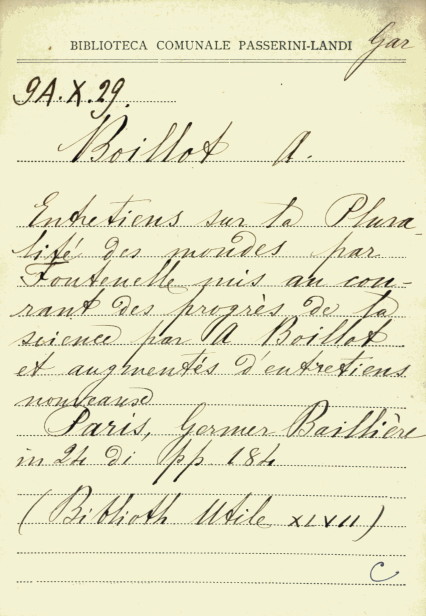 BIBLIOTECA COMUNALE PASSERINI-LANDI Gar
9A.X.29.
Boillot A.
Entretiens sur la Plura-
lité des mondes par
Fontenelle mis au cou-
rant des progrès de la
science par A Boillot
et augmentés d'entretiens
nouveaux
Paris, Germer Baillière
in 24 di pp 184
(Biblioth Utile XLVII)
C